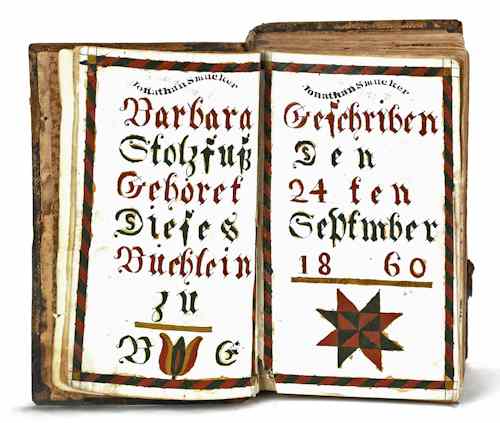 Jonathan Smucker
Barbara
Stolzfuß
Gehöret
Dieses
Buchlein
zu
B E
Jonathan Smucker
Geschriben
Den
24 ten
Septmber
1860